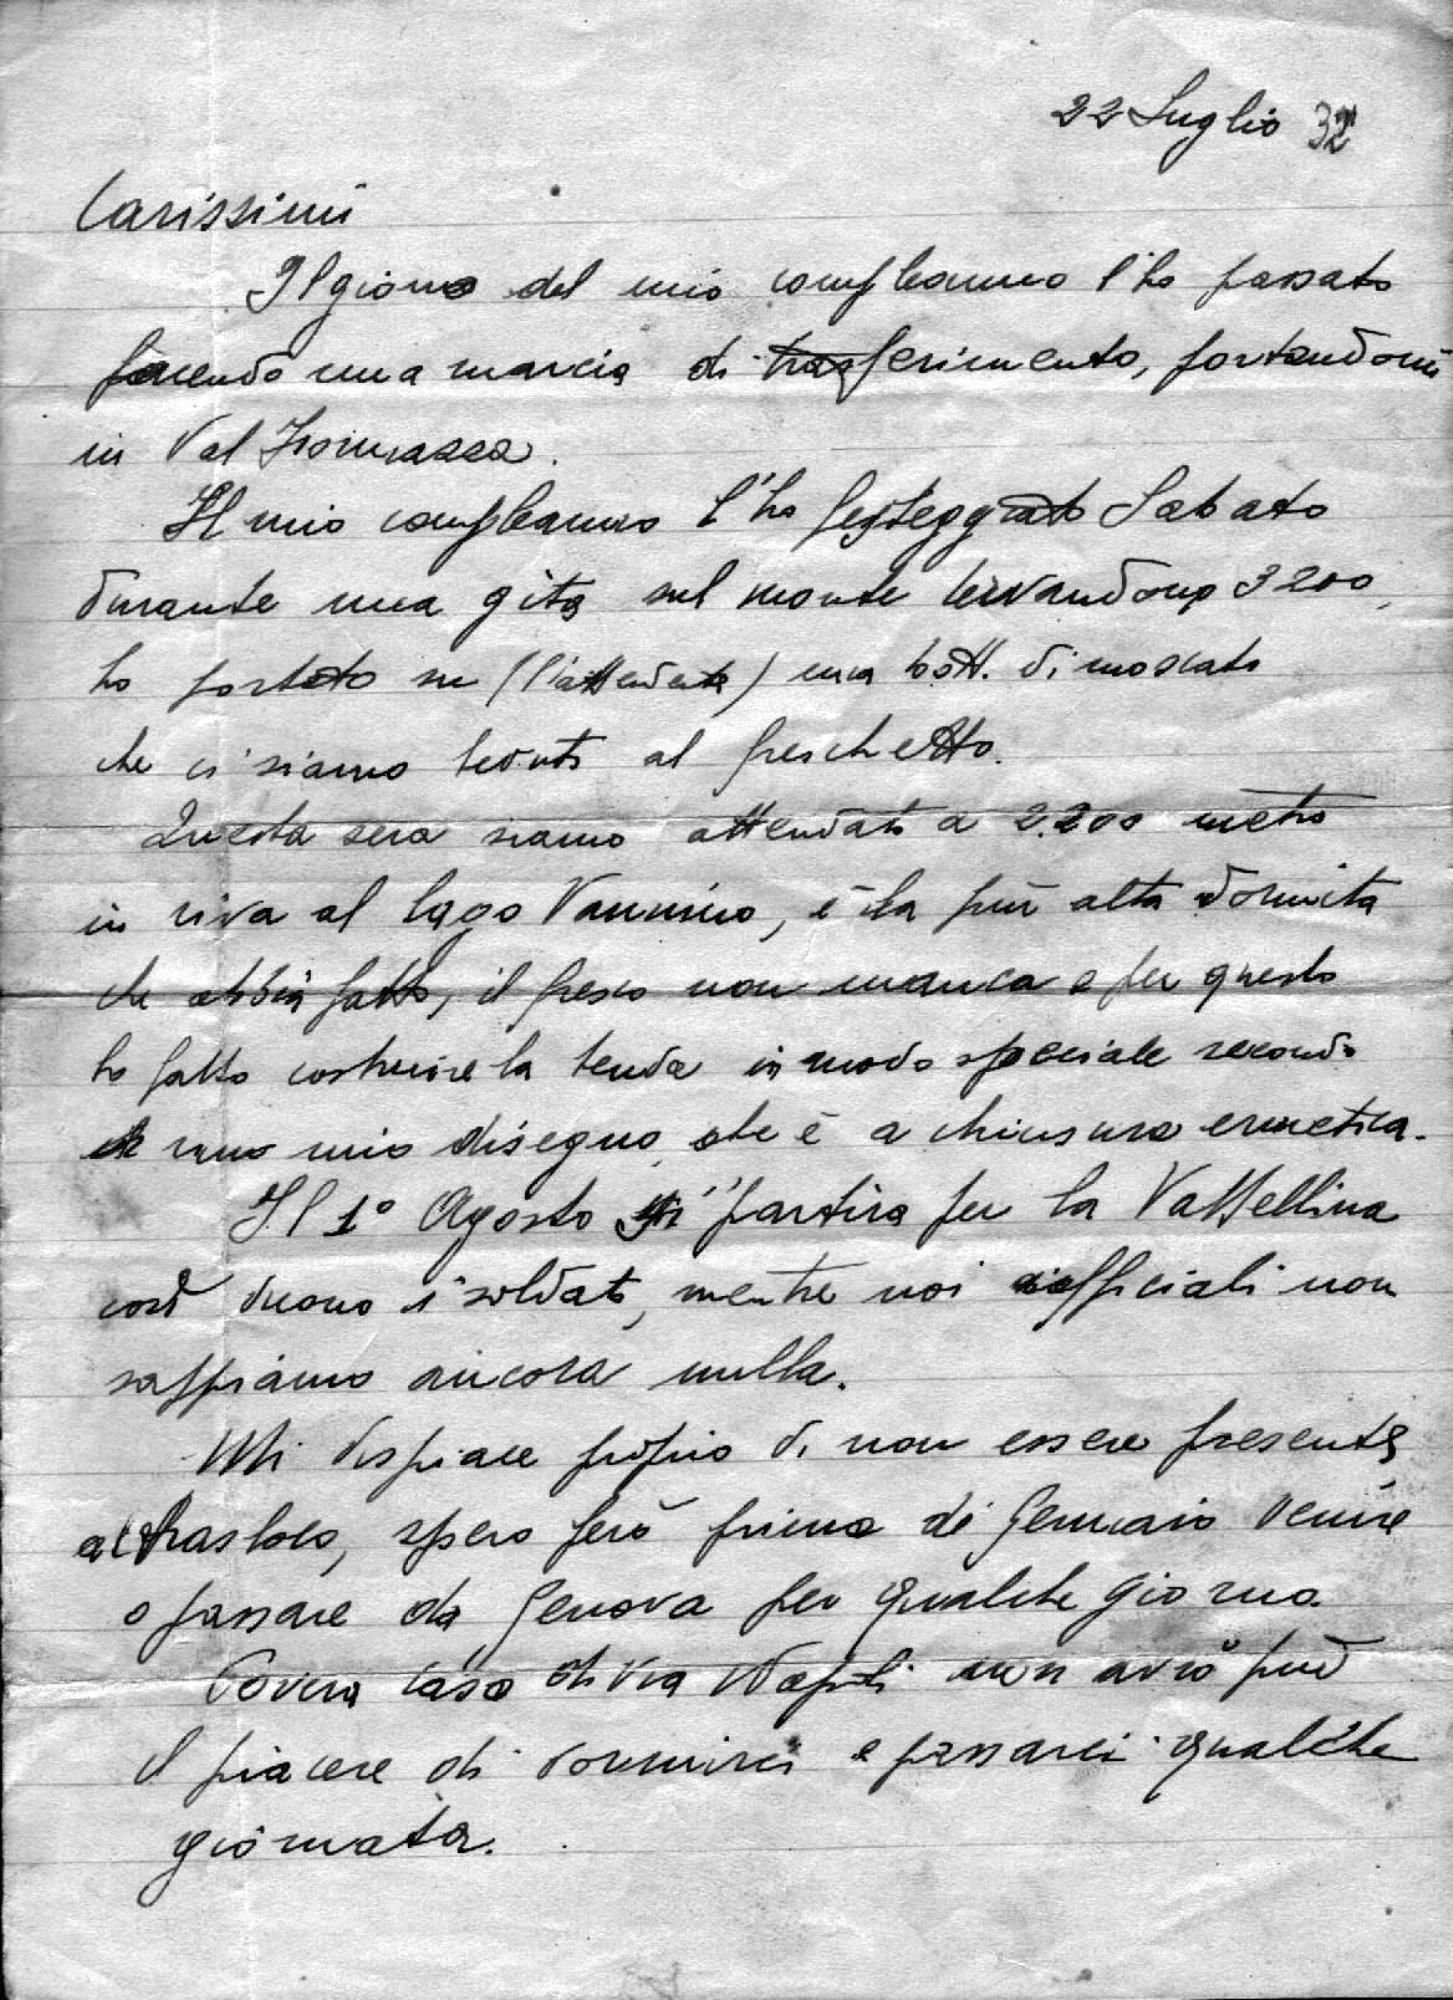 22 Luglio 32
Carissimi
Il giorno del mio compleanno l'ho passato
facendo una marcia di trasferimento, portandomi
in Val Formazza.
Il mio compleanno l'ho festeggiato Sabato
durante una gita sul monte 3200,
ho portato su (l'attendente) una bott. di moscato
che ci siamo bevuti al freschetto.
Questa sera siamo attendati a 2.200 metri
in riva al lago Vannino, è la più alta dormita
che abbia fatto, il fresco non manca e per questo
ho fatto costruire la tenda in modo speciale secondo
uno mio disegno che è a chiusura ermetica.
Il 1° Agosto si "partirà per la Valtellina
così dicono i soldati, mentre noi ufficiali non
sappiamo ancora nulla.
Mi dispiace proprio di non essere presente
al trasloco, spero però prima di Gennaio venire
o passare da Genova per qualche giorno.
Povera casa di Via Napoli non avrò più
il piacere di dormirci e passarci qualche
giornata.